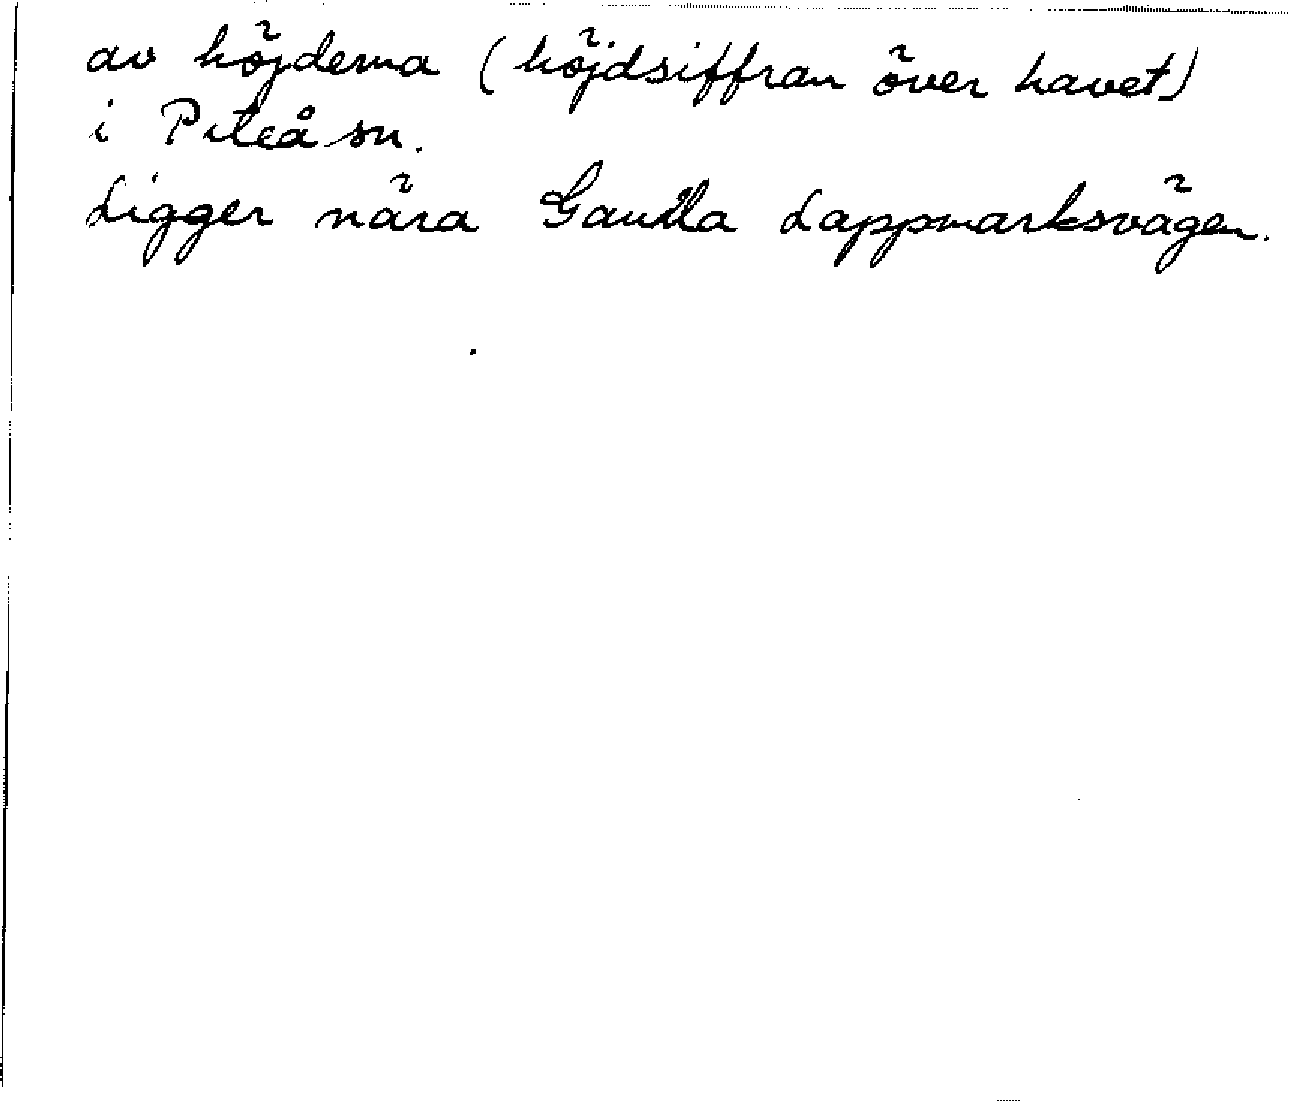 av höjderna (höjdsiffran över havet)
i Piteå sn.
Ligger nära Gamla Lappmarksvägen.